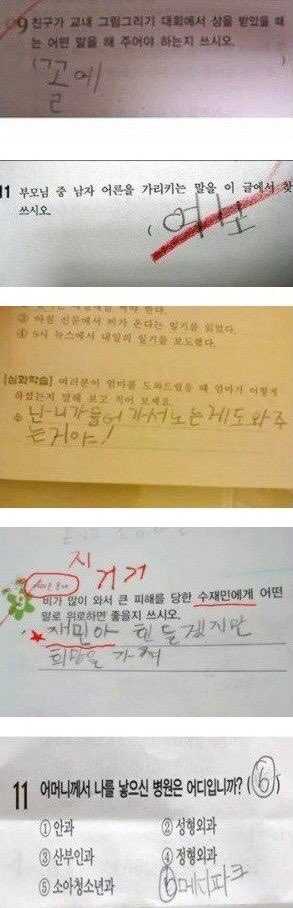 9 친구가 교내 그림그리기 대회에서 상을 받았을 때
는 어떤 말을 해 주어야 하는지 쓰시오.
( 꼴에 )
11 부모님 중 남자 어른을 가리키는 말을 이 글에서 찾
쓰시오.
( 여보
③ 아침 신문에서 비가 온다는 일기를 읽었다.
④ 5시 뉴스에서 내일의 일기를 보도했다.
[심화학습] 여러분이 엄마를 도와드렸을 때 엄마가 어떻게
하셨는지 말해 보고 적어 보세요.
난 니가 들어가서 노는게 도와주
는거야!
지
거거
9 비가 많이 와서 큰 피해를 당한 수재민에게 어떤
말로 위로하면 좋을지 쓰시오.
재민아 힘들겠지만
희망을 가져
11 어머니께서 나를 낳으신 병원은 어디입니까? ( 6 )
① 안과 ② 성형외과
③ 산부인과 ④ 정형외과
⑤ 소아청소년과 ⑥메디파크